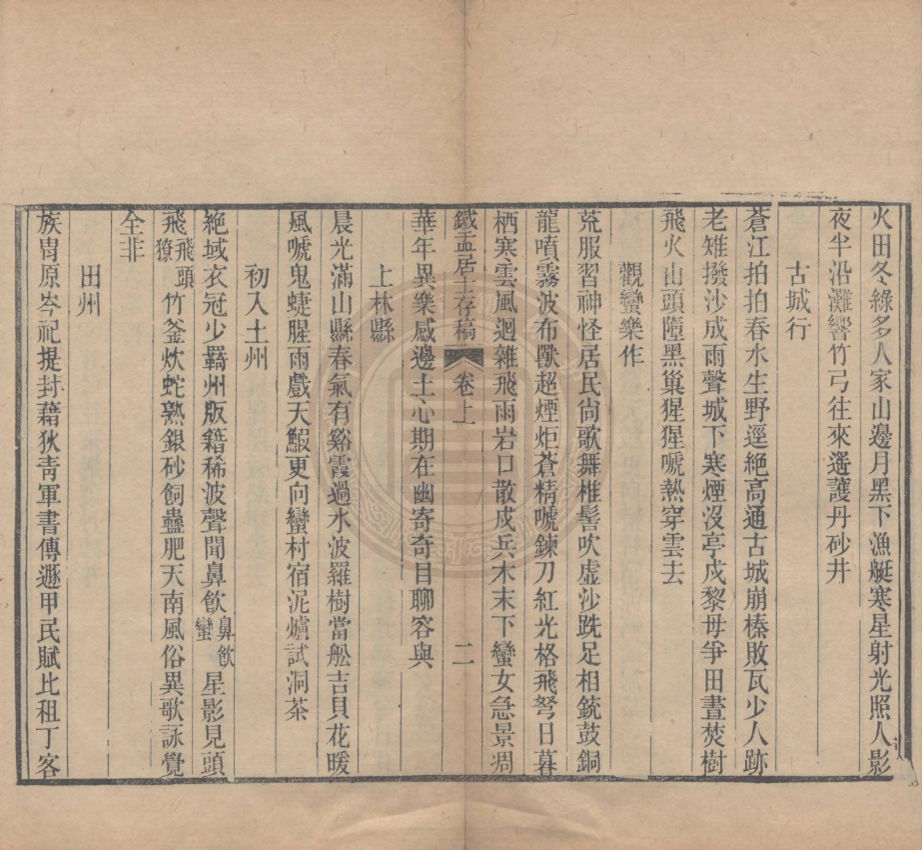 火田冬綠多人家山邊月黑下漁艇寒星射光照人影
夜半沿灘響竹弓往來遙護丹砂井
古城行
蒼江拍拍春水生野逕絕高通古城崩榛敗瓦少人跡
老雉撥沙成雨聲城下寒煙沒亭戍黎母爭田晝焚樹
飛火山頭墮黑巢猩猩嗁熱穿雲去
觀蠻樂作
荒服習神怪居民尙歌舞椎髻吹虛沙跣足相銃鼓銅
龍噴霧波布獸超煙炬蒼精嗁鍊刀紅光格飛弩日暮
栖寒雲風迴雜飛雨岩口散戍兵木末下蠻女急景凋
鐵盂居士存稿 卷上 二
華年異樂感邊土心期在幽寄奇目聊容與
上林縣
晨光滿山縣春氣有谿霞過水波羅樹當船吉貝花暖
風嗁鬼蜨腥雨戲天鰕更向蠻村宿泥爐試洞茶
初入土州
絕域衣冠少羇州版籍稀波聲聞鼻飮鼻飮蠻星影見頭
飛飛頭獠竹釜炊蛇熟銀砂飼蠱肥天南風俗異歌詠覺
全非
田州
族冑原岑祀提封藉狄靑軍書傳遯甲民賦比租丁客